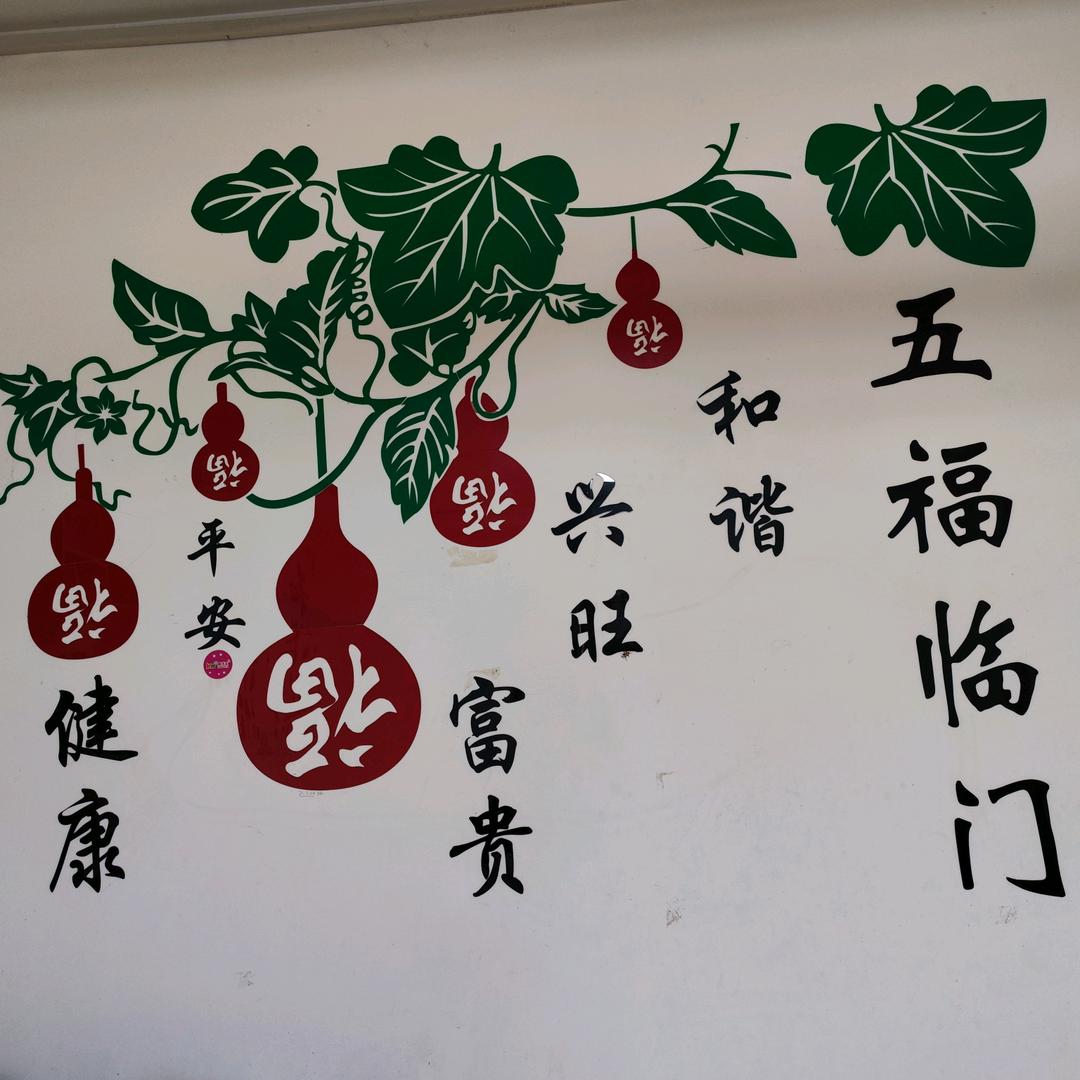 五福临门
和谐
兴旺
富贵
平安
健康
福
福
福
福
福